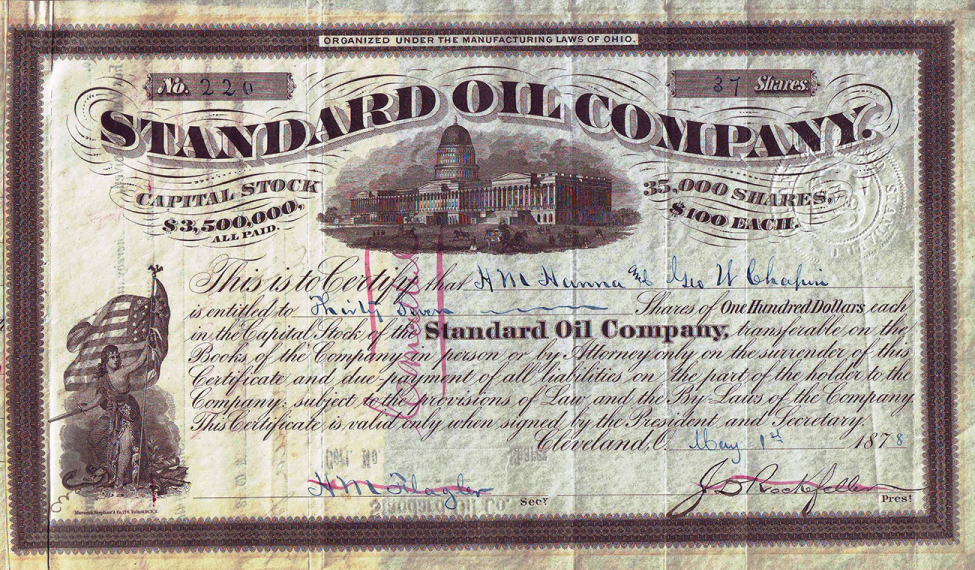 ORGANIZED UNDER THE MANUFACTURING LAWS OF OHIO.
No. 220
37 Shares.
STANDARD OIL COMPANY.
CAPITAL STOCK
$3,500,000,
ALL PAID.
35,000 SHARES,
$100 EACH.
This is to Certify that H M Hanna and Geo W Chapin
is entitled to Thirty Seven Shares of One Hundred Dollars each
in the Capital Stock of the Standard Oil Company, transferable on the
Books of the Company in person or by Attorney only on the surrender of this
Certificate and due payment of all liabilities on the part of the holder to the
Company, subject to the provisions of Law and the By-Laws of the Company.
This Certificate is valid only when signed by the President and Secretary.
Cleveland, O. May 1st 1878
H M Flagler Secy
J D Rockefeller Prest